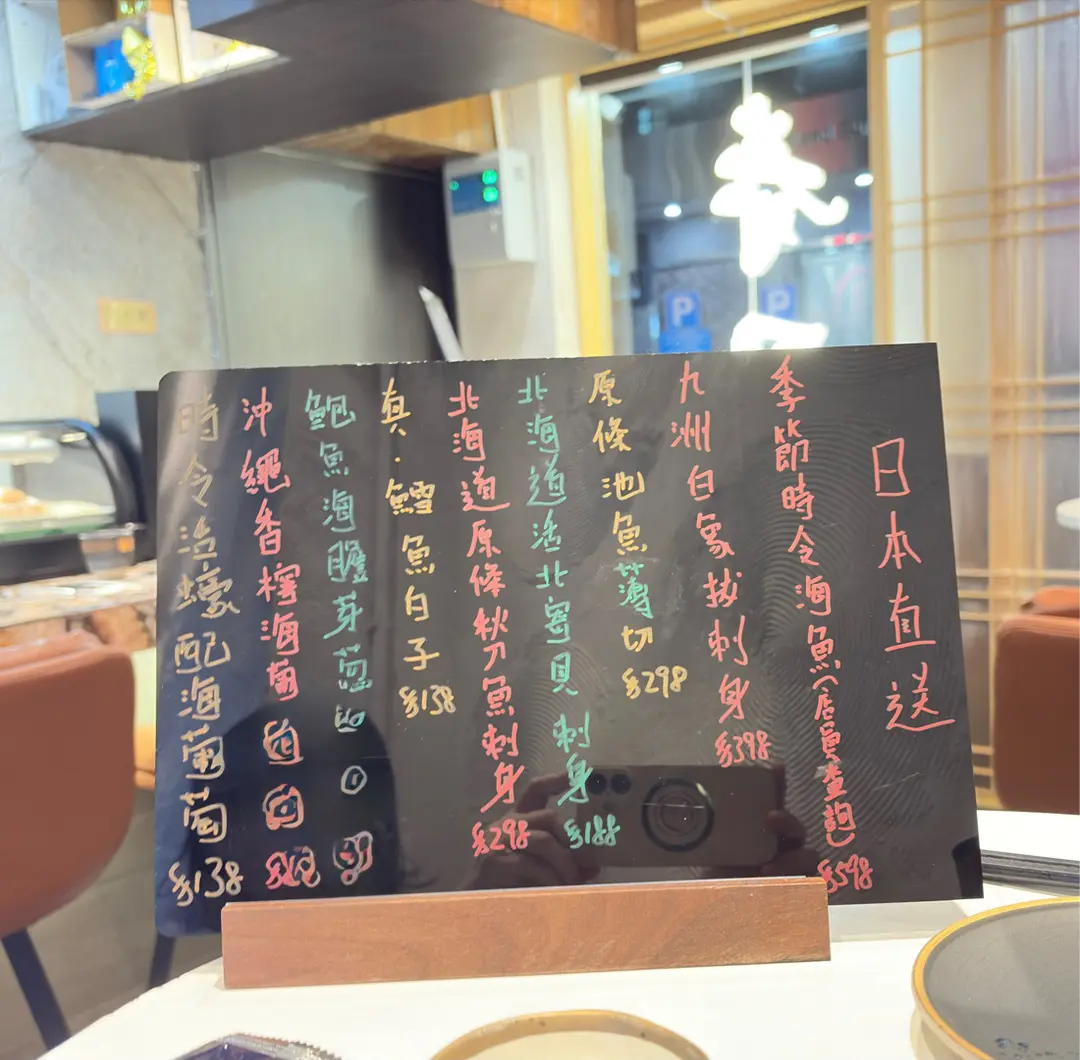 日本直送
季節時令海魚(店員查詢) $598
九洲白象拔刺身 $398
原條池魚薄切 $298
北海道活北寄貝刺身 $188
北海道原條秋刀魚刺身 $298
真.鱈魚白子 $138
鮑魚海膽芽葱
沖繩香檸海葡
時令活蠔配海葡萄 $138
P
P